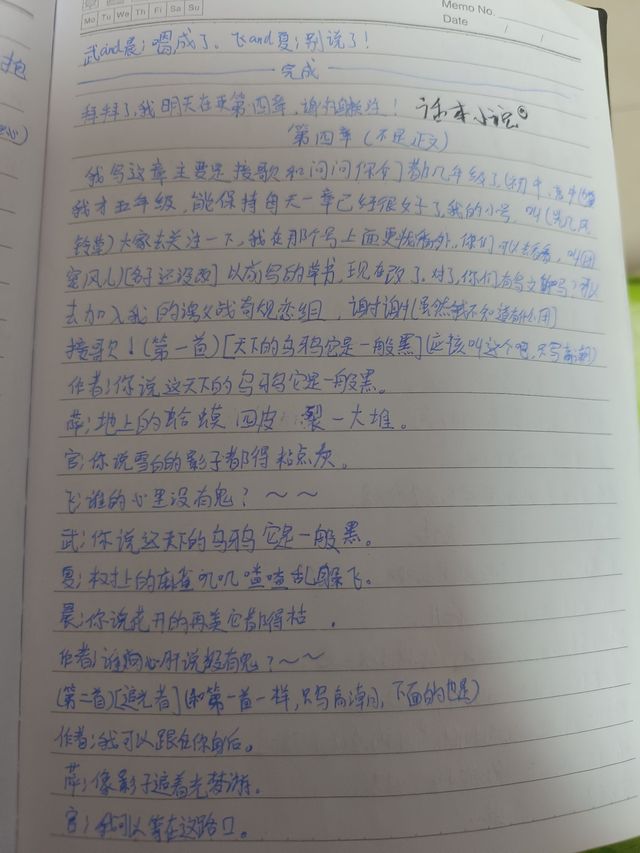 Mo Tu We Th Fa Sa Su
Memo No.
Date / /
抱
武and晨:唱成了。飞and夏:别说了!
完成
拜拜了,我明天在更第四章,谢谢关注! 话本小说
第四章(不是正文)
我写这章主要是接歌和问问你们都几年级了,初中,高中
我才五年级,能保持每天一章已经很好了,我的小号,叫
铃堂)大家去关注一下,我在那个号上面更,你们可以去看看,叫团
宠风儿)[名子还没改]以前写的草书,现在改了。对了,你们有
去加入我的演义战奇组,谢谢谢谢(虽然我不知道有什么用)
接歌!(第一首)[天下的乌鸦它是一般黑](应该叫这个吧,只写高潮)
作者:你说这天下的乌鸦它是一般黑。
薛:地上的蛤蟆四皮裂一大堆。
官:你说雪白的影子都得粘点灰。
飞:谁的心里没有鬼?~~
武:你说这天下的乌鸦它是一般黑。
夏:杈上的麻雀叽叽喳喳乱躲飞。
晨:你说花开的再美它都得枯.
作者:谁的心肝说没有鬼?~~
(第二首)[追光者](和第一首一样,只写高潮,下面的也是)
作者:我可以跟在你身后。
薛:像影子追着光梦游。
官:我可以等在这路口。